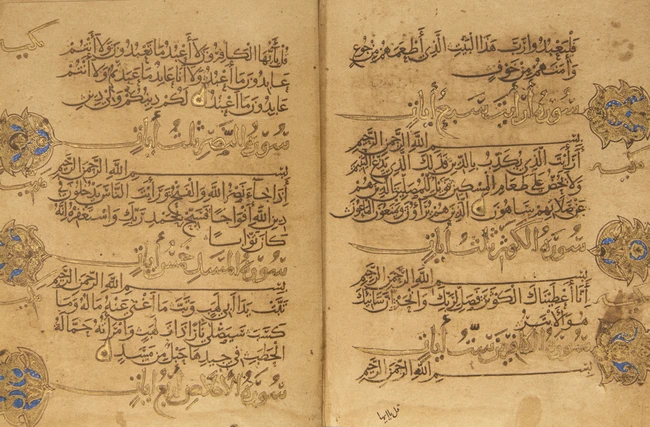 فليعبدوا رب هذا البيت الذي أطعمهم من جوع
وآمنهم من خوف
سورة أرأيت سبع آيات
بسم الله الرحمن الرحيم
أرأيت الذي يكذب بالدين فذلك الذي يدع اليتيم
ولا يحض على طعام المسكين فويل للمصلين الذين هم
عن صلاتهم ساهون الذين هم يراؤن ويمنعون الماعون
سورة الكوثر ثلث آيات
بسم الله الرحمن الرحيم
إنا أعطيناك الكوثر فصل لربك وانحر إن شانئك
هو الأبتر
سورة الكافرين ست آيات
بسم الله الرحمن الرحيم
قل يا أيها
قل يا أيها الكافرون لا أعبد ما تعبدون ولا أنتم
عابدون ما أعبد ولا أنا عابد ما عبدتم ولا أنتم
عابدون ما أعبد لكم دينكم ولي دين
سورة النصر ثلث آيات
بسم الله الرحمن الرحيم
إذا جاء نصر الله والفتح ورأيت الناس يدخلون في
دين الله أفواجا فسبح بحمد ربك واستغفره إنه
كان توابا
سورة المسد خمس آيات
بسم الله الرحمن الرحيم
تبت يدا أبي لهب وتب ما أغنى عنه ماله وما
كسب سيصلى نارا ذات لهب وامرأته حمالة
الحطب في جيدها حبل من مسد
سورة الإخلاص أربع آيات